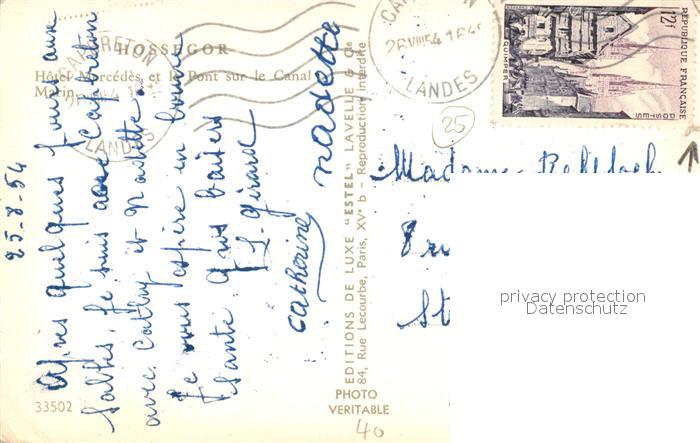 HOSSEGOR
Hôtel Mercédès et le Pont sur le Canal
Marin
25-8-54
Après quelques jours aux
Sables, je suis avec Capbreton
avec Cathy et Nadette.
Je vous espère en bonne
Santé Gros baisers
L. Girard
Catherine
nadette
EDITIONS DE LUXE "ESTEL" LAVELLE & Cie
84, Rue Lecourbe, Paris, XVe b - Reproduction interdite
PHOTO
VERITABLE
33502
40
CAPBRETON
LANDES
26 VIII 54
LANDES
25
12F
REPUBLIQUE FRANÇAISE
POSTES
QUIMPER
Madame
St
privacy protection
Datenschutz